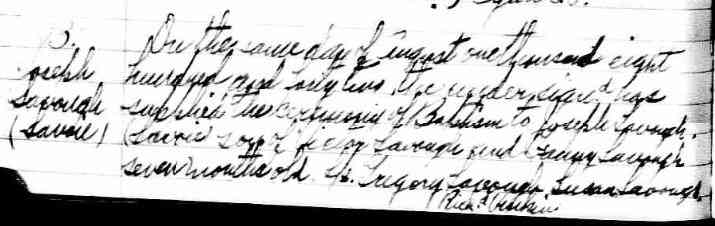 B.
Joseph
Savough
(Savoie)
On the same day of August one thousand eight
hundred and forty two, the undersigned has
supplied the ceremony of Baptism to Joseph Savough
(Savoie) son of Victor Savough and Fanny Savough
seven months old. Gregory Savough, Susan Savough